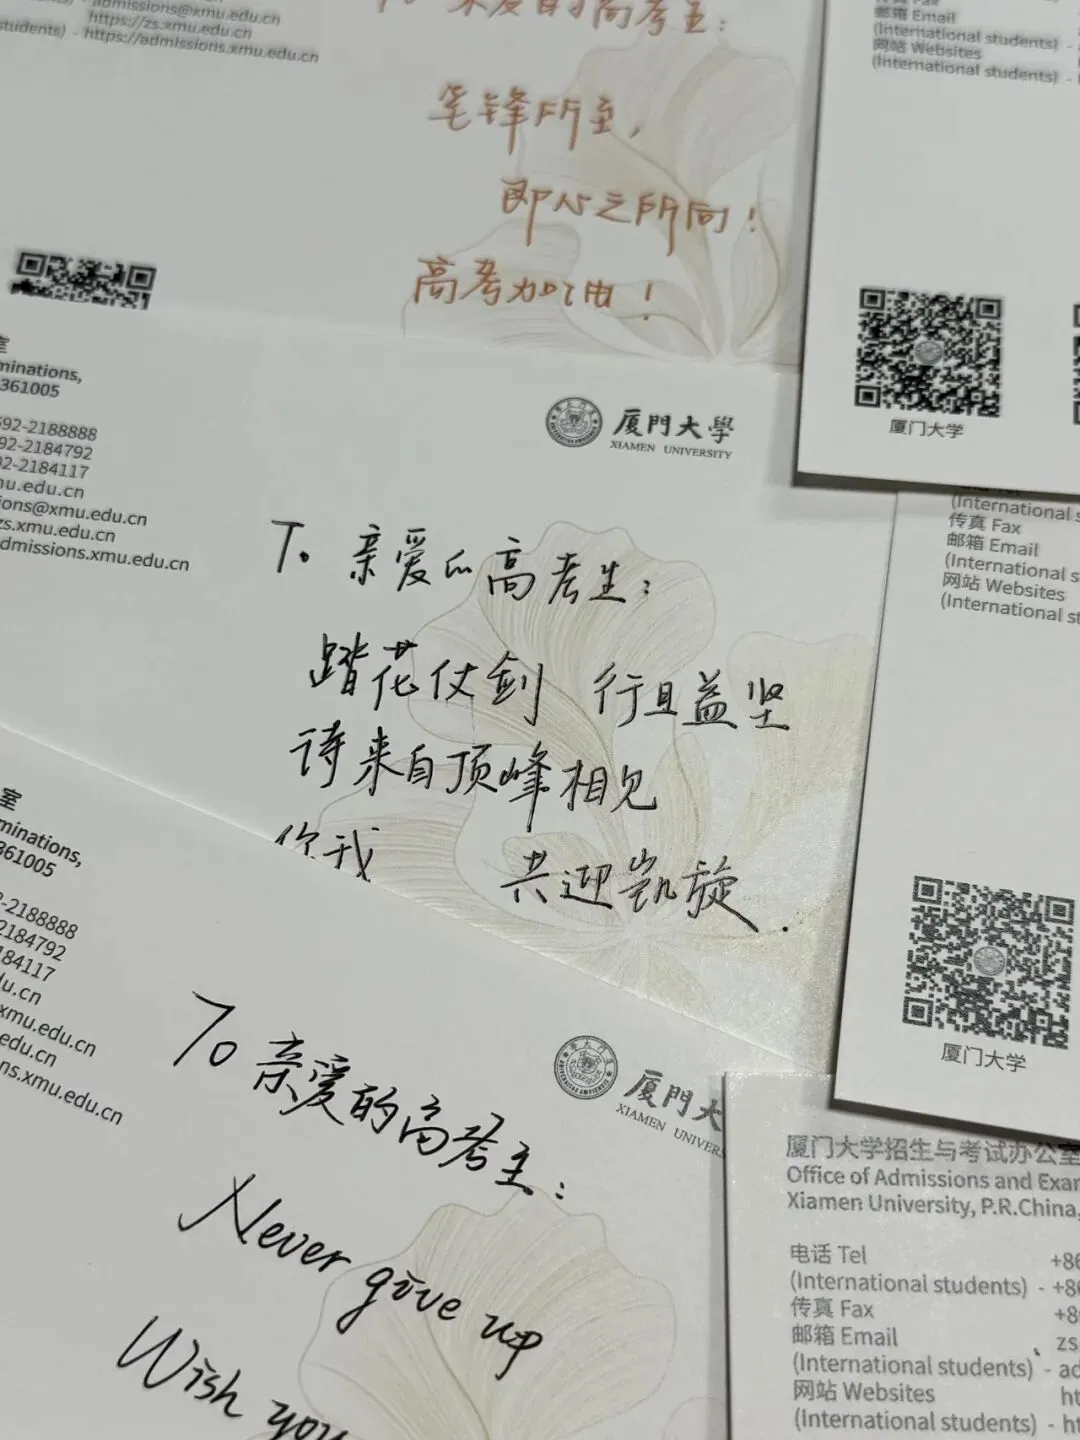 admissions@xmu.edu.cn
https://zs.xmu.edu.cn
students) - https://admissions.xmu.edu.cn
To 亲爱的高考生：
笔锋所至，
即心之所向！
高考加油！
邮箱 Email
(International students)
网站 Websites
(International students) -
厦门大学
室
minations,
361005
592-2188888
92-2184792
02-2184117
mu.edu.cn
ions@xmu.edu.cn
zs.xmu.edu.cn
dmissions.xmu.edu.cn
厦門大學
XIAMEN UNIVERSITY
To 亲爱的高考生：
踏花仗剑 行且益坚
待来自顶峰相见
你我 共迎凯旋.
(International s
传真 Fax
邮箱 Email
(International s
网站 Websites
(International st
厦门大学
室
minations,
361005
2-2188888
2184792
184117
u.edu.cn
xmu.edu.cn
edu.cn
ns.xmu.edu.cn
厦門大
XIAMEN UNIVERS
To 亲爱的高考生：
Never give up
Wish you
厦门大学招生与考试办公室
Office of Admissions and Exam
Xiamen University, P.R.China,
电话 Tel +86
(International students) - +86
传真 Fax +8
邮箱 Email zs
(International students) - ad
网站 Websites ht
(International students) - ht